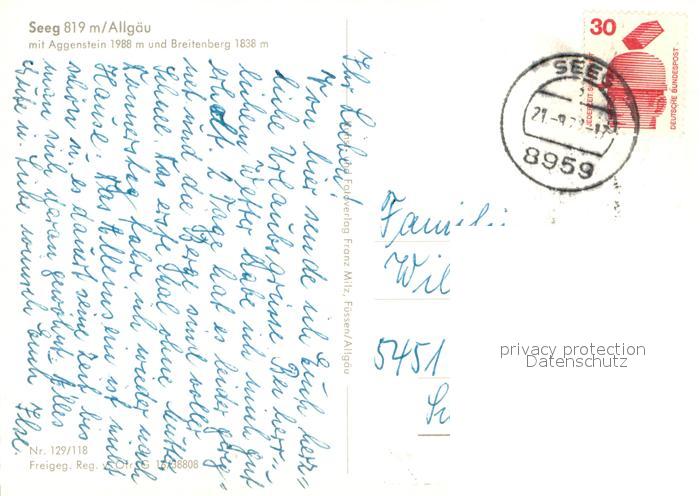 Seeg 819 m/Allgäu
mit Aggenstein 1988 m und Breitenberg 1838 m
Ihr Lieben!
Von hier sende ich Euch herz=
liche Urlaubsgrüsse. Bei herr=
lichem Wetter habe ich mich gut
erholt. 2 Tage hat es leider gereg=
net und die Berge sind voller
Schnee. Das erste Mal ohne Mutter.
Donnerstag fahre ich wieder nach
Hause. Das Alleinsein ist nicht
schön u. es dauert seine Zeit bis
man sich daran gewöhnt. Alles
Gute u. Liebe wünscht Euch Ilse.
Nr. 129/118
Freigeg. Reg. v. Obb. G 16/38808
und Fotoverlag Franz Milz, Füssen/Allgäu
30
JEDERZEIT S
DEUTSCHE BUNDESPOST
SEEG
21.-9.72-17
8959
Familie
Wil
5451
privacy protection
Datenschutz